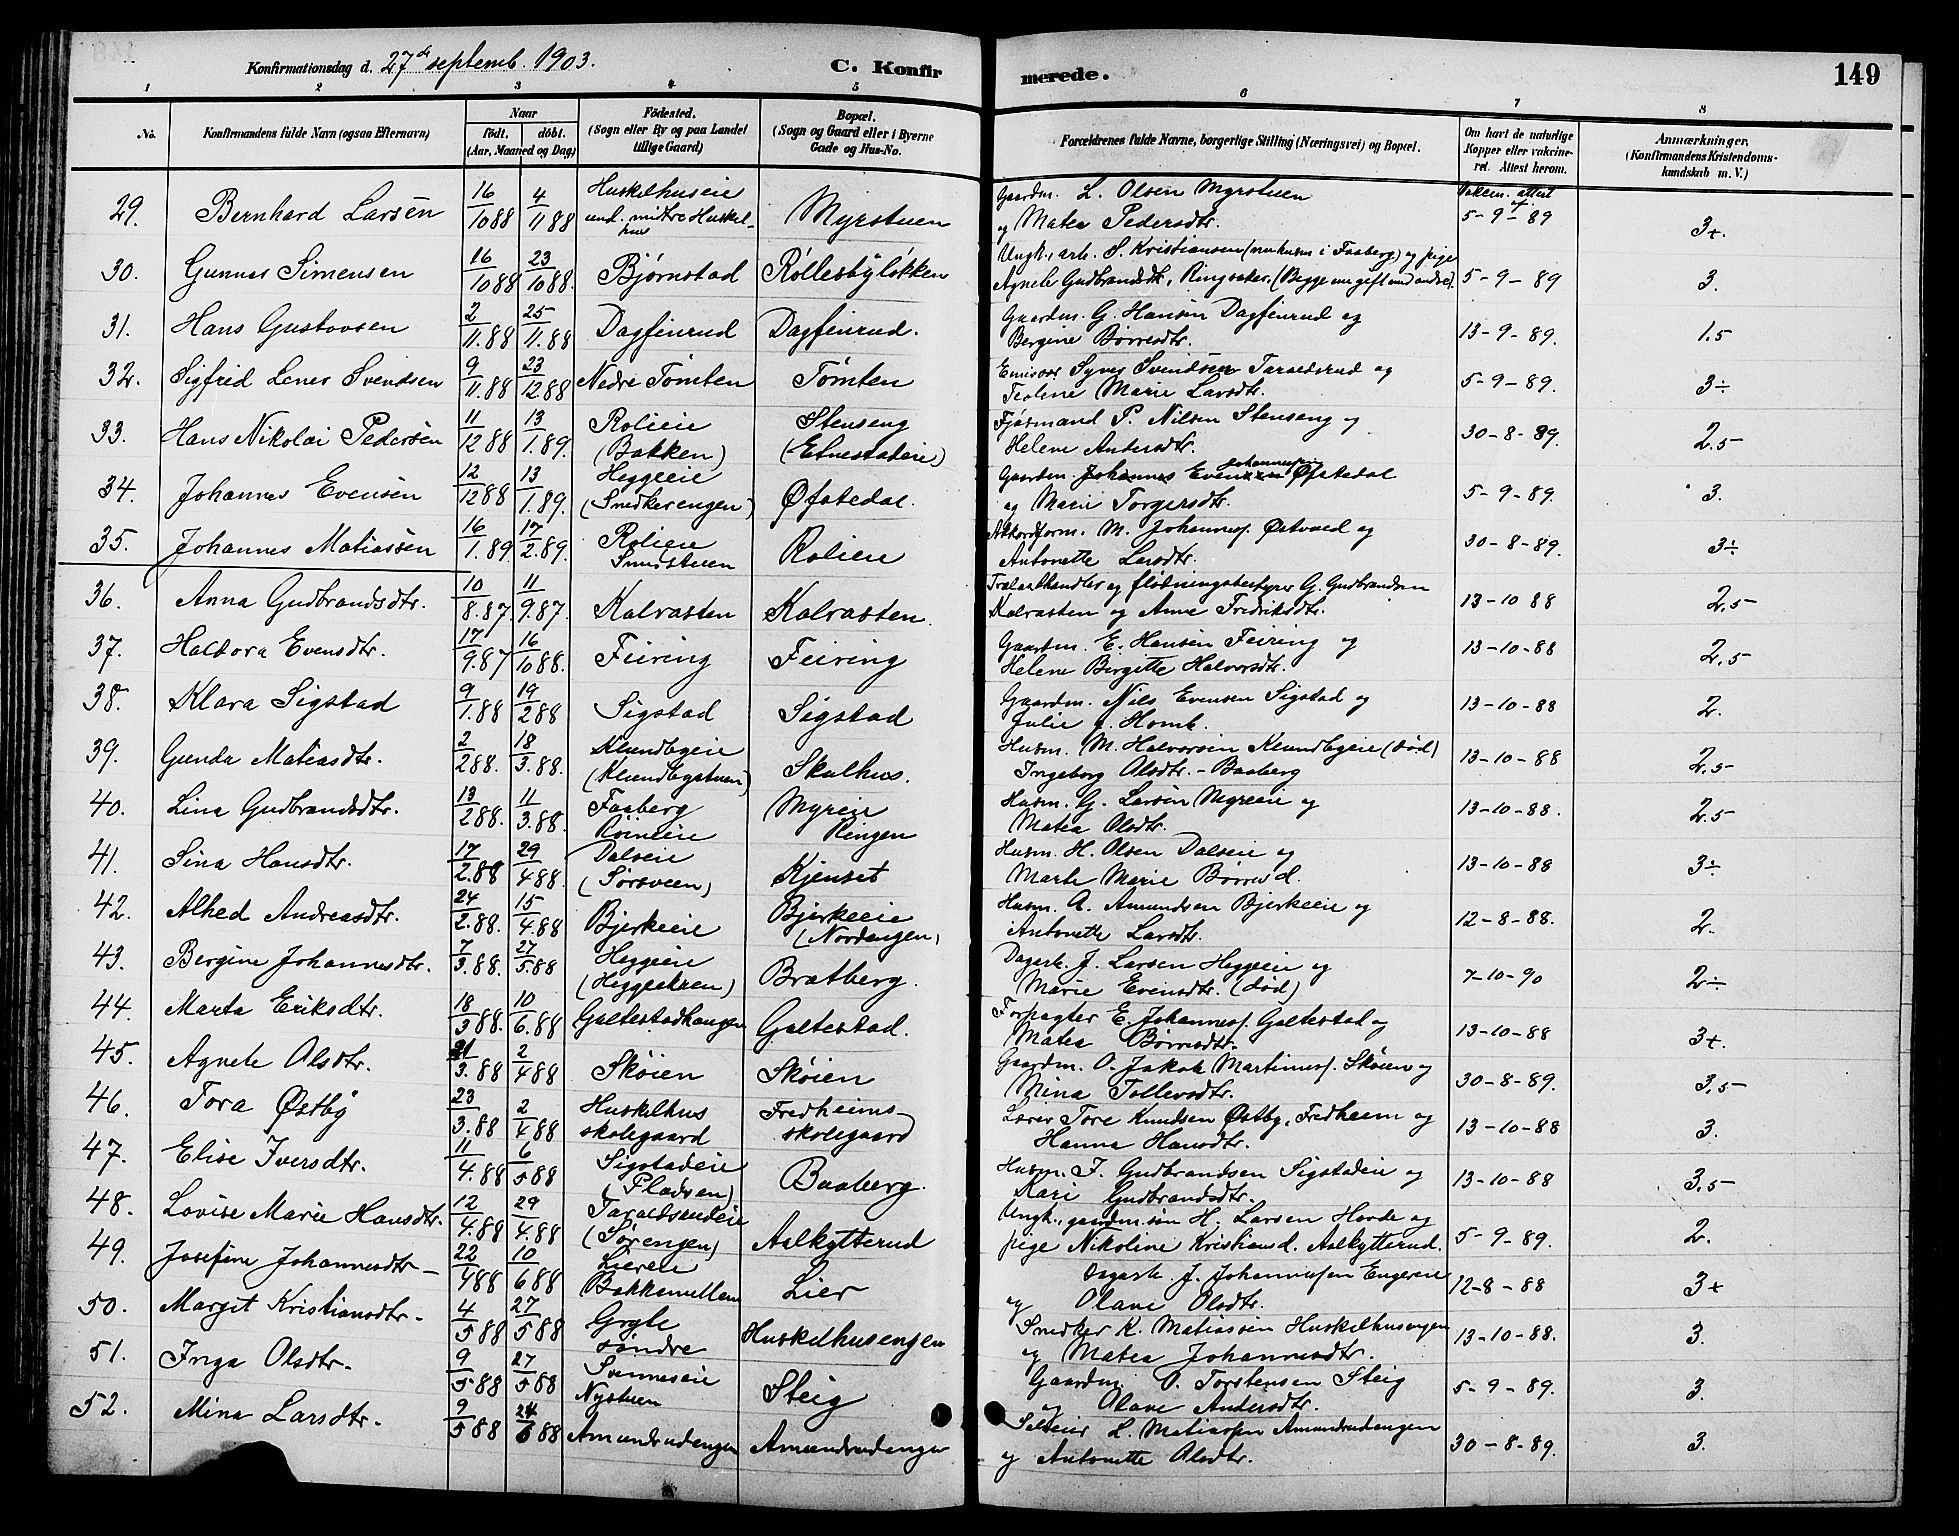 Konfirmationsdag d. 27de septemb. 1903. C. Konfir merede. 149
1 2 3 4 5 6 7 8
No. Konfirmandens fulde Navn (ogsaa Efternavn) Naar født. døbt. (Aar, Maaned og Dag) Fødested. (Sogn eller By og paa Landet tillige Gaard) Bopæl. (Sogn og Gaard eller i Byerne Gade og Hus-No. Forældrenes fulde Navne, borgerlige Stilling (Næringsvei) og Bopæl. Om havt de naturlige Kopper eller vakcineret. Attest herom. Anmærkninger. (Konfirmandens Kristendomskundskab m. V.)
29. Bernhard Larsen 16/10 88 4/11 88 Huskelhuseie und. mitre Huskelhus Myrstuen Gaardm. L. Olsen Myrstuen og Matea Pedersdtr. Vakcin. attest af 5-9-89 3+.
30. Gunnar Simensen 16/10 88 23/10 88. Bjørnstad Røllesbyløkken Ungk., arb. S. Kristiansen (murhusm i Faaberg) og pige Agnete Gudbrandsdtr., Ringsaker, (Begge nu gift med andre). 5-9-89 3.
31. Hans Gustavsen 2/11.88 25/11.88 Dagfinrud Dagfinrud. Gaardm. G. Hansen Dagfinrud og Bergine Børresdtr. 13-9-89. 1.5
32. Sigfred Lenes Svendsen 9/11.88 23/12 88 Nedre Tømten Tømten Emisær Syver Svendsen Taraldsrud og Teoline Marie Larsdtr. 5-9-89. 3÷
33. Hans Nikolai Pedersen 11/12 88 13/1.89. Rolieie (Bakken) Stenseng (Etnestadeie) Fjøsmand P. Nilsen Stenseng og Helene Andersdtr. 30-8-89. 2.5
34. Johannes Evensen 12/12 88 13/1.89. Heggeie (Snedkerengen) Øfstedal. Gaardm. Johannes Evensen Johannesen Øfstedal og Marie Torgersdtr. 5-9-89. 3.
35. Johannes Matiassen 16/1.89. 17/2.89. Rolieie Smedstuen Rolieie Akkordform. M. Johannes. Østvold og Antonette Larsdtr. 30-8-89. 3÷
36. Anna Gudbrandsdtr. 10/8.87. 11/9.87. Kalrasten Kalrasten. Trælasthandler og fløtningsbestyrer G. Gudbrandsen Kalrasten og Anne Fredriksdtr. 13-10 88 2,5
37. Haldora Evensdtr. 17/9.87 16/10 88. Feiring Feiring Gaardm. E. Hansen Feiring og Helene Birgitte Halvorsdtr. 13-10-88 2,5
38. Klara Sigstad 9/1.88 19/2 88 Sigstad Sigstad Gaardm. Nils Evensen Sigstad og Julie f. Homb. 13-10-88 2.
39. Gunda Matiasdtr. 2/2 88. 18/3.88. Klundbyeie (Klundbystuen) Skalhus. Husm. M. Halvorsen Klundbyeie (død) Ingeborg Olsdtr. - Baaberg 13-10-88 2,5
40. Lina Gudbrandsdtr. 13/2 88. 11/3.88. Faaberg Røineeie Myreie Ringen Husm. G. Larsen Myreeie og Matea Olsdtr. 13-10-88. 2.5
41. Sina Hansdtr. 17/2.88 29/4 88. Dalseie (Sørsveen) Kjenset Husm. H. Olsen Dalseie og Marte Marie Børresd. 13-10-88 3÷
42. Alhed Andreasdtr. 24/2.88. 15/4.88 Bjerkeeie Bjerkeeie (Nordengen) Husm. A. Amundsen Bjerkeeie og Antonette Larsdtr. 12-8-88. 2.
43. Bergine Johannesdtr. 7/3.88. 27/5.88 Heggeie (Heggeekren) Bratberg. Dagarb. J. Larsen Heggeie og Marie Evensdtr. (død) 7-10-90 2÷
44. Marta Eriksdtr. 18/3 88. 10/6.88 Galtestadhaugen Galtestad. Forpagter E. Johannes. Galtestad og Matea Børresdtr. 13-10-88 3+.
45. Agnete Olsdtr. 21/3.88 2/4 88 Skøien Skøien Gaardm. O. Jakob Martinus. Skøien og Mina Tollevsdtr. 30-8-89. 3,5
46. Tora Østby 23/3.88 2/4 88 Huskelhus skolegaard Fredheims skolegaard Lærer Tore Knudsen Østby, Fredheim og Hanna Hansdtr. 13-10-88 3.
47. Elise Iversdtr. 11/4.88 6/5 88 Sigstadeie (Pladsen) Baaberg. Husm. I. Gudbrandsen Sigstadeie og Kari Gudbrandsdtr. 13-10-88 3,5
48. Lovise Marie Hansdtr. 12/4.88 29/4.88 Taraldsrudeie (Sørengen) Aalkytterud Ungk., gaardm.søn H. Larsen Hovde og pige Nikoline Kristiansd. Aalkytterud. 5-9-89. 2.
49. Josefine Johannesdtr. 22/4 88 10/6 88 Liereie Bakkemellem Lier Dagarb. J. Johannesen Engereie og Olave Olsdtr. 12-8-88 3+
50. Margit Kristiansdtr. 4/5 88 27/5 88 Grythe søndre Huskelhusengen Snedker K. Matiassen Huskelhusengen og Matea Johannesdtr. 13-10-88. 3.
51. Inga Olsdtr. 9/5 88 27/5 88 Svenneseie Nystuen Steig Gaardm. O. Torstensen Steig og Olave Andersdtr. 5-9-89. 3.
52. Mina Larsdtr. 9/5 88 24/6 88 Amundrudengen Amundrudengen Selveier L. Matiassen Amundrudengen og Antonette Olsdtr. 30-8-89. 3.